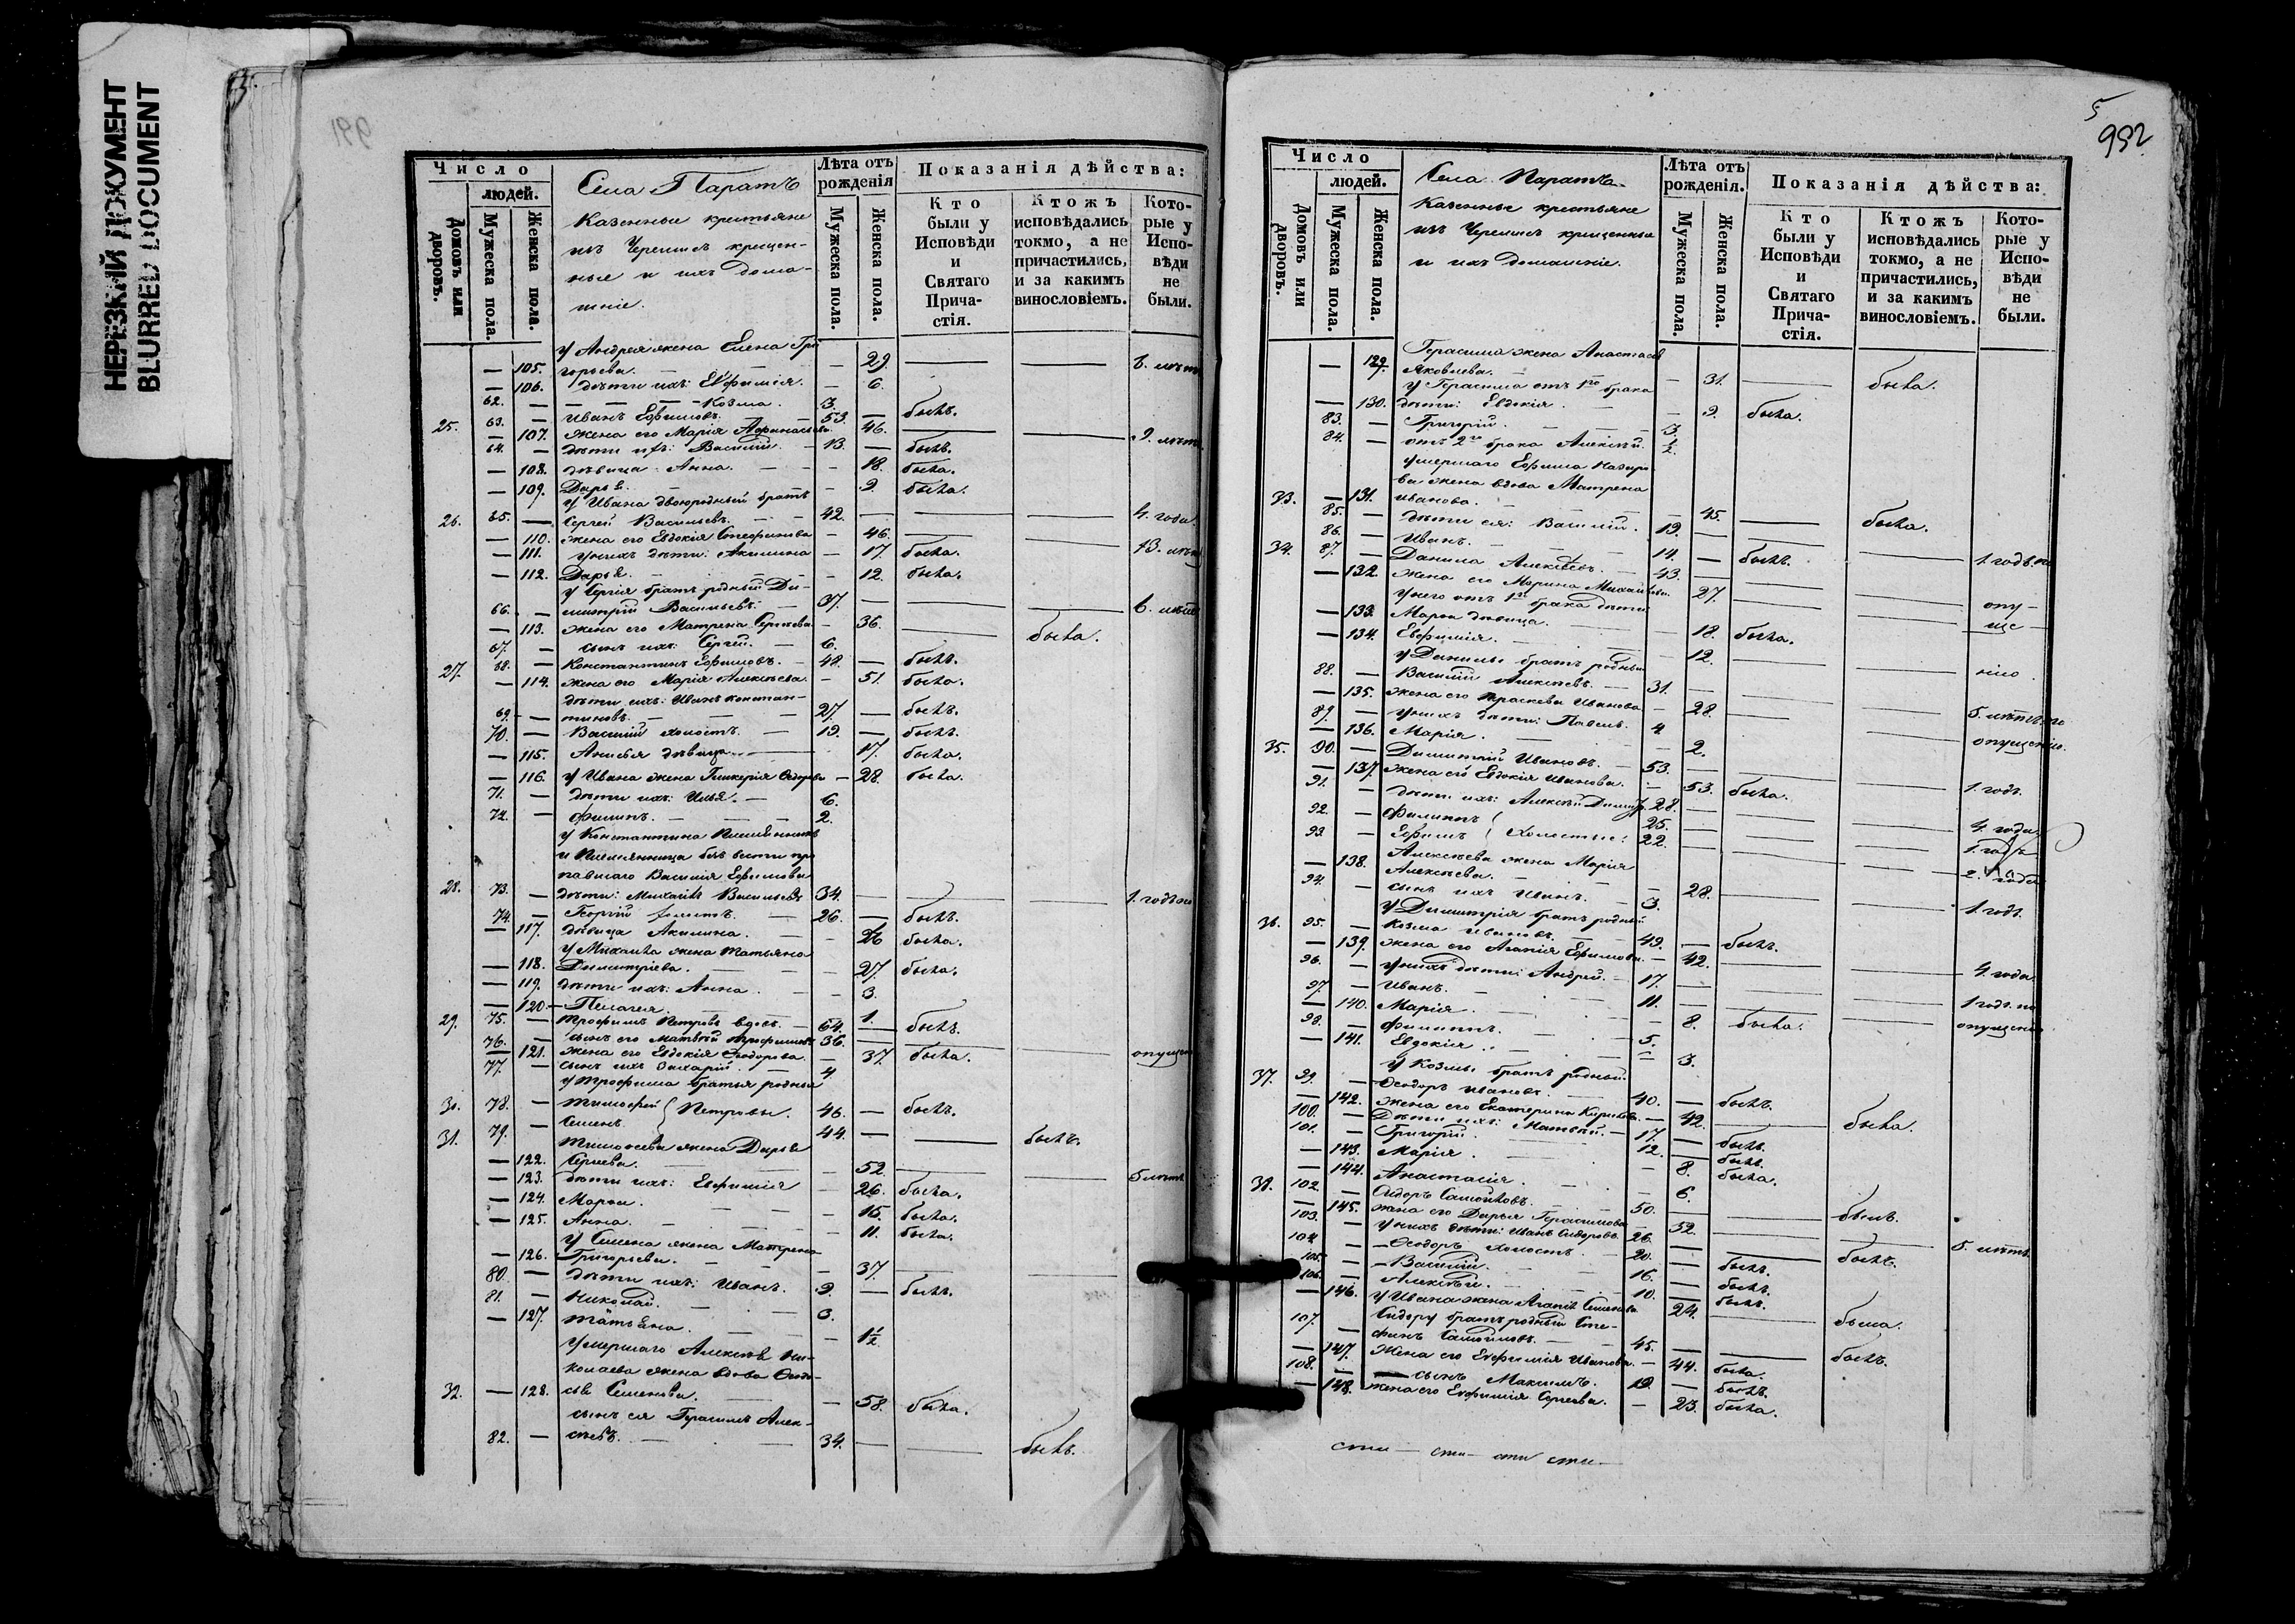 НЕРЕЗКИЙ ДОКУМЕНТ
BLURRED DOCUMENT
991
Число
людей.
Домовъ или дворовъ.
Мужеска пола.
Женска пола.
Села Паратъ
Казенные крестьяне
изъ Черемисъ крещен-
ные и ихъ дома-
шніе.
Лѣта отъ рожденія
Мужеска пола.
Женска пола.
Показанія дѣйства:
Кто были у Исповѣди и Святаго Причастія.
Ктожъ исповѣдались токмо, а не причастились, и за какимъ винословіемъ.
Которые у Исповѣди не были.
У Андрея жена Елена Гри
— 105. горьева. — 29. — — 6. лѣтъ
— 106. дѣти ихъ: Евфимія. — 6.
62. — — Козма. 3.
25. 63. — Иванъ Ефимовъ. 53. — былъ.
— 107. жена его Марія Афанасьева. 46. — — 9. лѣтъ
64. — дѣти ихъ: Василій. 13. — былъ.
— 108. дѣвица Анна. — 18. была.
— 109. Дарья. — 9. была.
У Ивана двоюродный братъ
26. 65. — Сергѣй Васильевъ. 42. — — — 4. года.
— 110. жена его Евдокія Стефанова — 46. — —
— 111. у нихъ дѣти: Акилина — 17. была. 13. лѣтъ
— 112. Дарья. — 12. была.
У Сергія братъ родный Ди-
66. — митрій Васильевъ. — 37. — — — 6. лѣтъ
— 113. жена его Матрена Сергѣева — 36. — была.
67. — сынъ ихъ: Сергѣй. — 6.
27. 68. — Константинъ Ефимовъ. — 48. — былъ.
— 114. жена его Марія Алексѣева. — 51. была.
дѣти ихъ: Иванъ Констан-
69. — тиновъ. — 27. — былъ.
70. — Василій холостъ. — 19. — былъ.
— 115. Анисья дѣвица. — 17. была.
— 116. У Ивана жена Гликерія Ѳедорова — 28. была.
71. — дѣти ихъ: Илья. — 6.
72. — Филипъ. — 2.
У Константина племянники
и племянница безъ вести про
павшаго Василія Ефимова
28. 73. — дѣти: Михаилъ Васильевъ 34. — — — 1. годъ
74. — Георгій холостъ. — 26. — былъ.
— 117. дѣвица Акилина. — 26 была.
У Михаила жена Татьяна
— 118. Димитріева. — 27. была.
— 119. дѣти ихъ: Анна. — 3.
— 120. — Пелагея. 1.
29. 75. — Трофимъ Петровъ вдовъ. — 64. — былъ.
76. — сынъ его Матвѣй Трофимовъ 36. — — —
— 121. жена его Евдокія Ѳедорова. — 37. была. опущен
77. — сынъ ихъ Захарій. — 4
У Трофима братья родные
30. 78. — Тимофей } Петровы. 46. — былъ.
31. 79. — Семенъ. 44. — — былъ.
Тимофеева жена Дарья
— 122. Сергеева. — 52. —
— 123. дѣти ихъ: Евфимія — 26. была. — 6 лѣтъ
— 124. Марѳа. — 15. была.
— 125. Анна. — 11. была.
У Семена жена Матрена
— 126. Григорьева. — 37. — —
80. — дѣти ихъ: Иванъ. 9. — былъ.
81. — Николай. 3.
— 127. Татьяна. — 1½
Умершаго Алексѣя Ни-
колаева жена вдова Ѳедо-
32. — 128. сья Семенова. — 58. была.
сынъ ея Герасимъ Алек-
82. — сѣевъ. — 34. — — былъ.
5
992
Число
людей.
Домовъ или дворовъ.
Мужеска пола.
Женска пола.
Села Паратъ
Казенные крестьяне
изъ Черемисъ крещенные
и ихъ домашніе.
Лѣта отъ рожденія.
Мужеска пола.
Женска пола.
Показанія дѣйства:
Кто были у Исповѣди и Святаго Причастія.
Ктожъ исповѣдались токмо, а не причастились, и за какимъ винословіемъ.
Которые у Исповѣди не были.
Герасима жена Анастасія
— 129. Яковлева. — 31. — была.
У Герасима отъ 1го брака
— 130. дѣти: Евдокія. — 9. была.
83. — Григорій. 3.
84. — отъ 2го брака Алексѣй. ½
Умершаго Ефима Назаро
ва жена вдова Матрена
33. — 131. Иванова. — 45. — была.
85. — дѣти ея: Василій. 19. —
86. — Иванъ. 14. — былъ. — 1. годъ по
34. 87. — Данила Алексѣевъ. — 43. —
— 132. жена его Марина Михайлова. 27. — — опу-
У него отъ 1го брака дѣти
— 133. Марѳа дѣвица. — 18. была. ще
— 134. Евфимія. — 12. — — нію.
У Данилы братъ родный
88. — Василій Алексѣевъ. — 31. —
— 135. жена его Параскева Иванова — 28. — — 5. лѣтъ по
89. — у нихъ дѣти: Павелъ. 4
— 136. Марія. — 2. опущенію.
35. 90. — Димитрій Ивановъ. — 53. —
— 137. жена его Евдокія Иванова. — 53. была. 1. годъ.
91. — дѣти ихъ: Алексѣй Димитр. 28. —
92. — Филиппъ } 25. — 4. года
93. — Ефимъ } холостые: 22. — 1. годъ
Алексѣева жена Марія
— 138. Алексѣева. — 28. — 2. года
94. — сынъ ихъ Иванъ. — 3. 1. годъ.
У Димитрія братъ родный
36. 95. — Козма Ивановъ. — 49. — былъ.
— 139. жена его Агапія Ефимова. — 42. — — 4. года.
96. — у нихъ дѣти: Андрей. — 17. —
97. — Иванъ. — 11. — — 1 годъ по
— 140. Марія. — 8. была. опущенію
98. — Филиппъ. — 5.
— 141. Евдокія. — 3.
У Козмы братъ родный
37. 99. — Ѳеодоръ Ивановъ. — 40. — былъ.
— 142. жена его Екатерина Кирилова. — 42. — была.
100. — Дѣти ихъ: Матвѣй. — 17. — былъ.
101. — Григорій. 12. — былъ.
— 143. Марія. — 8. была.
— 144. Анастасія. — 6.
38. 102. — Сидоръ Самойловъ. 50. — — былъ.
— 145. жена его Дарья Герасимова — 52. — — 5. лѣтъ.
103. — у нихъ дѣти: Иванъ Сидоровъ. 26. — — былъ.
104. — Ѳеодоръ холостъ. 20. — былъ.
105. — Василій. — 16. — былъ.
106. — Алексѣй. — 10. — былъ.
— 146. У Ивана жена Агапія Семенова 24. — была.
Сидору братъ родный Сте-
107. — фанъ Самойловъ. — 45. — — былъ.
— 147. Жена его Евфимія Иванова. — 44. была.
108. — сынъ Максимъ. 19. — былъ.
— 148. жена его Евфимія Сергеева. — 23. была.